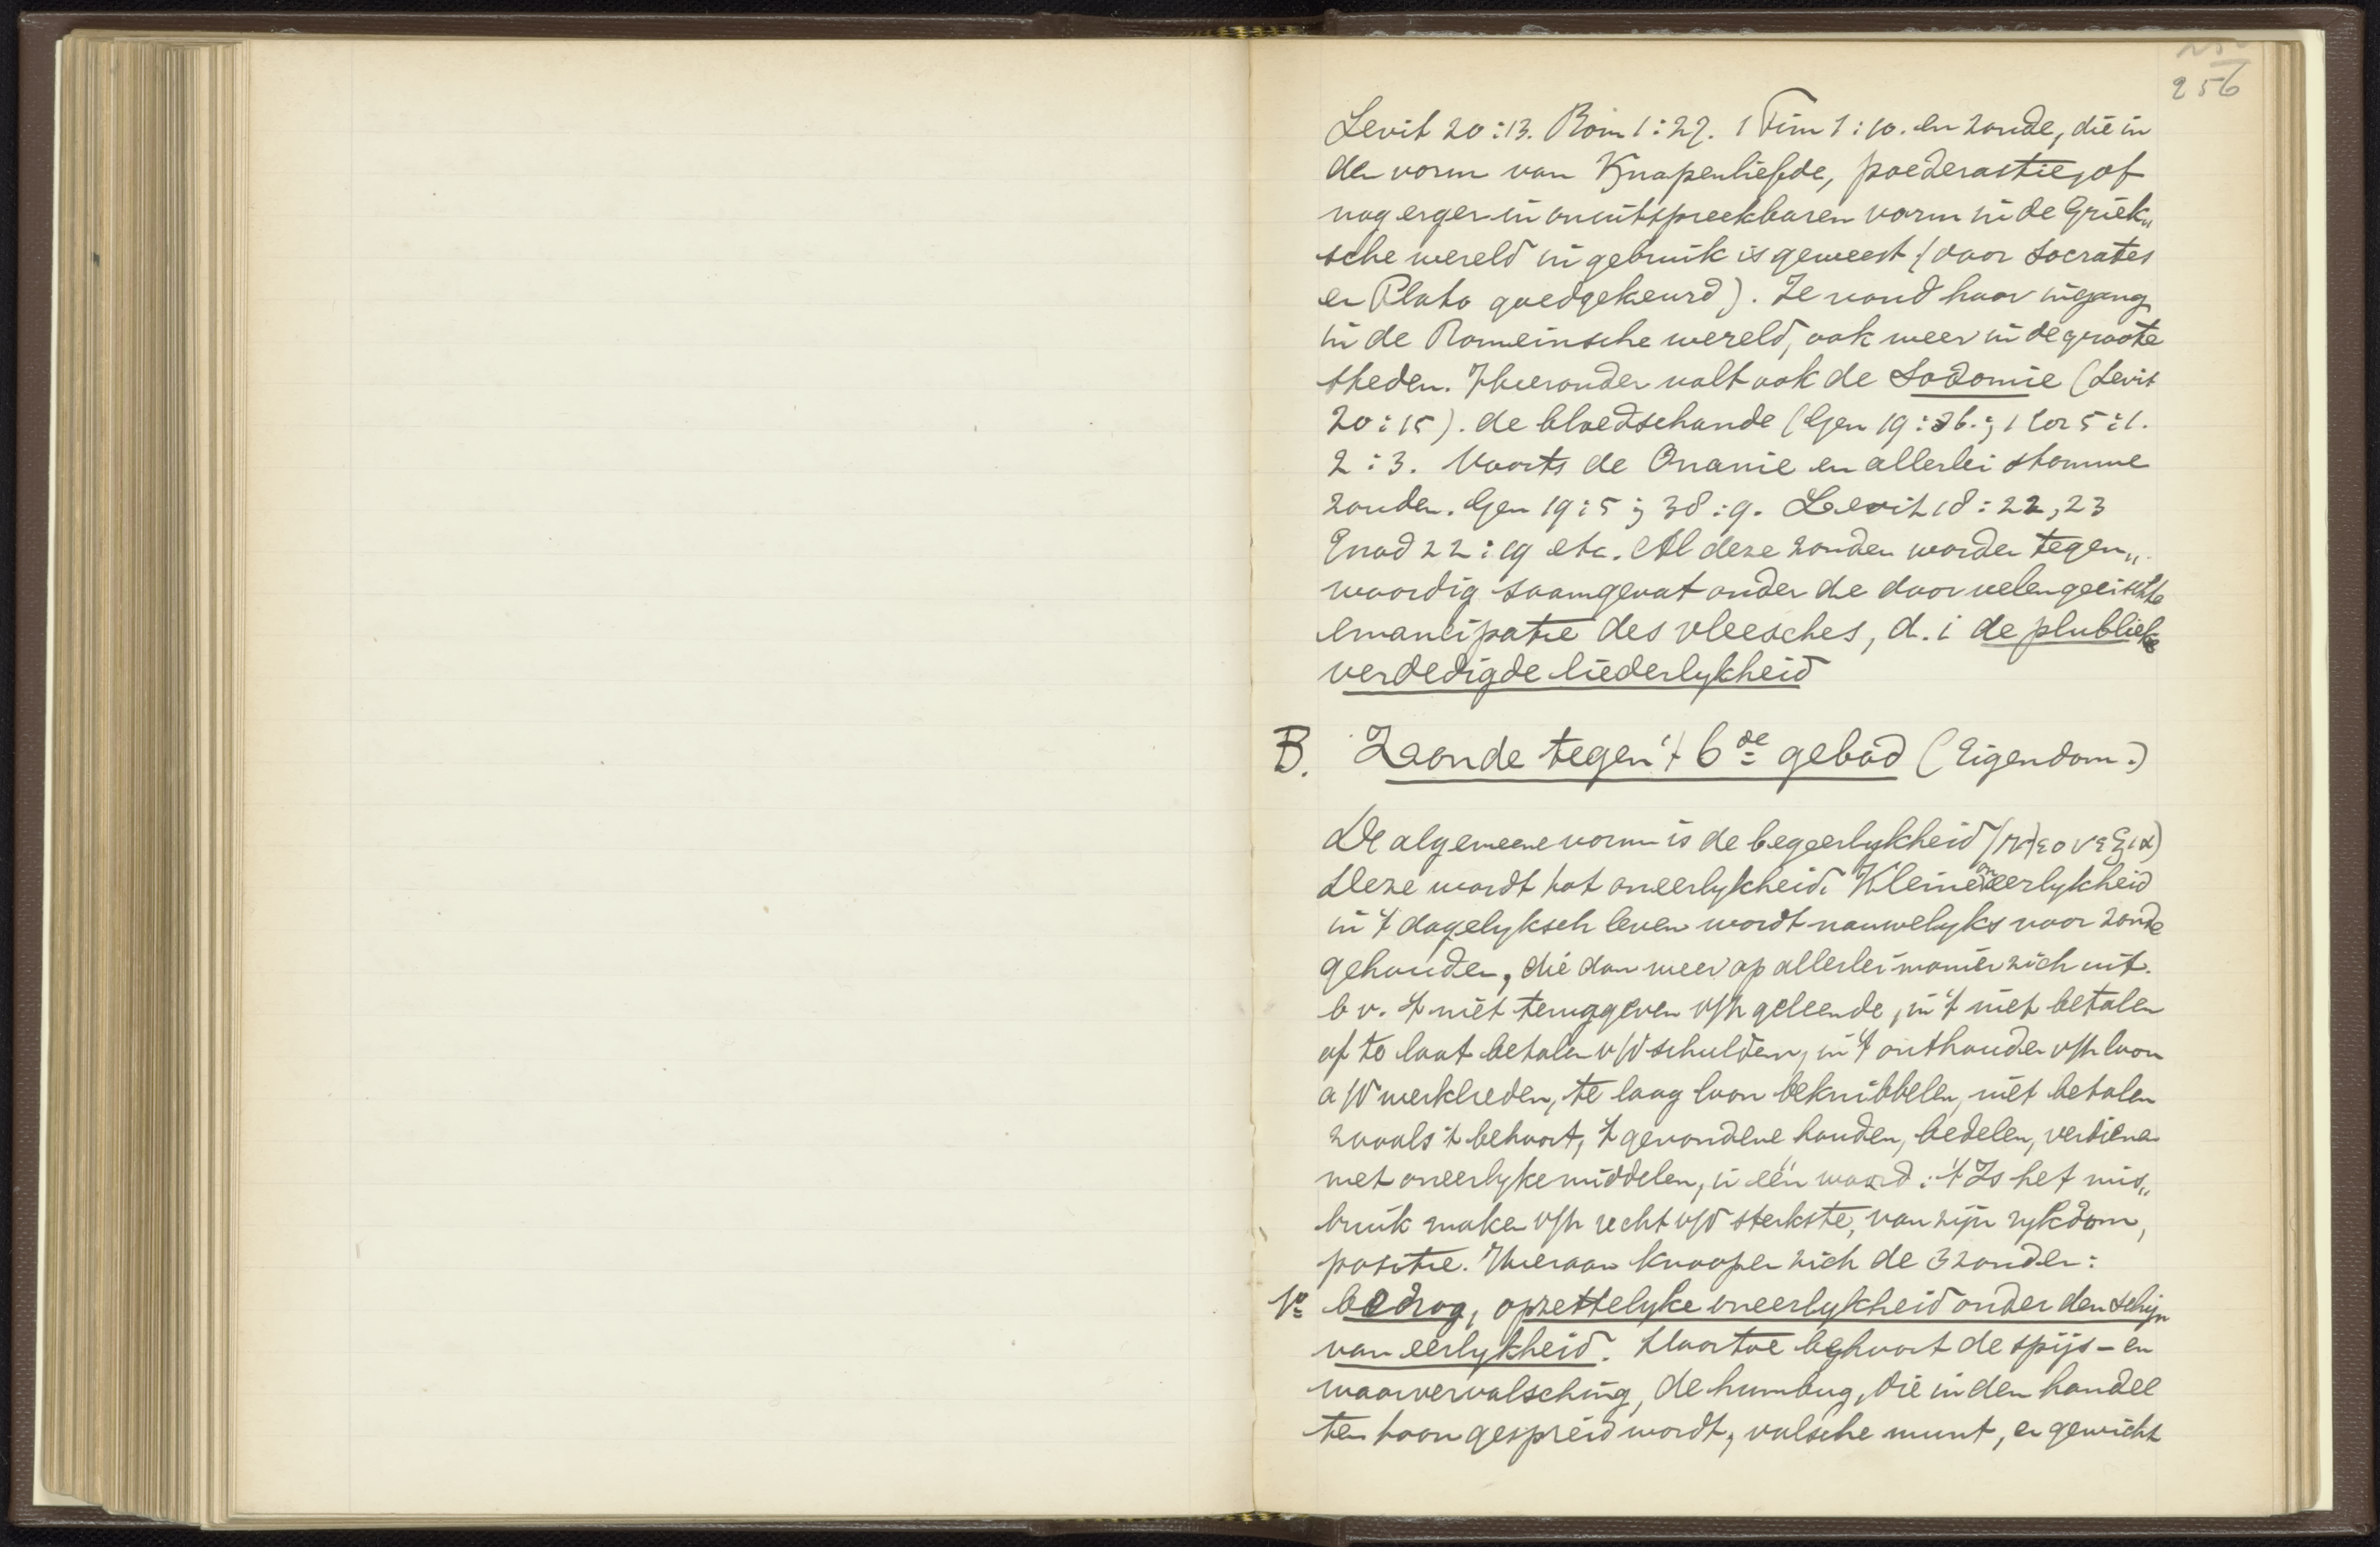 256
Levit 20:13. Rom 1:27. 1 Tim 1:10. en zonde, die in
den vorm van Knapenliefde, paederastie, of
nog erger in onuitspreekbaren vorm in de Griek„
sche wereld in gebruik is geweest (door Socrates
en Plato goedgekeurd). Ze vond haar ingang
in de Romeinsche wereld, ook weer in de groote
steden. Hieronder valt ook de Sodomie (Levit
20:15). de bloedschande (Gen 19:36.; 1 Cor 5:1.
2:3. Voorts de Onanie en allerlei stomme
zonden. Gen 19:5; 38:9. Levit 18:22, 23
Exod 22:19 etc. Al deze zonden worden tegen„
woordig saamgevat onder de door velen geëischte
emancipatie des vleesches, d. i de plublieke
verdedigde liederlykheid
B. Zonde tegen 't 6de gebod (Eigendom.)
De algemeene vorm is de begeerlykheid (πλεονεξια)
Deze wordt tot oneerlykheid. Kleine oneerlykheid
in 't dagelyksch leven wordt nauwelyks voor zonde
gehouden, die dan weer op allerlei manier zich uit.
b v. 't niet teruggeven v/h geleende, in 't niet betalen
of te laat betalen v/d schulden, in 't onthouden v/h loon
a/d werklieden, te laag loon beknibbelen, niet betalen
zooals 't behoort, 't gevondene houden, bedelen, verdienen
met oneerlyke middelen, in één woord: 't Is het mis„
bruik maken v/h recht v/d sterkste, van zijn rykdom,
positie. Hieraan knoopen zich de 3 zonden:
1o bedrog, opzettelyke oneerlykheid onder den schijn
van eerlykheid. Daartoe behoort de spijs- en
waarvervalsching, de humbug, die in den handel
ten toon gespreid wordt, valsche munt, en gewicht